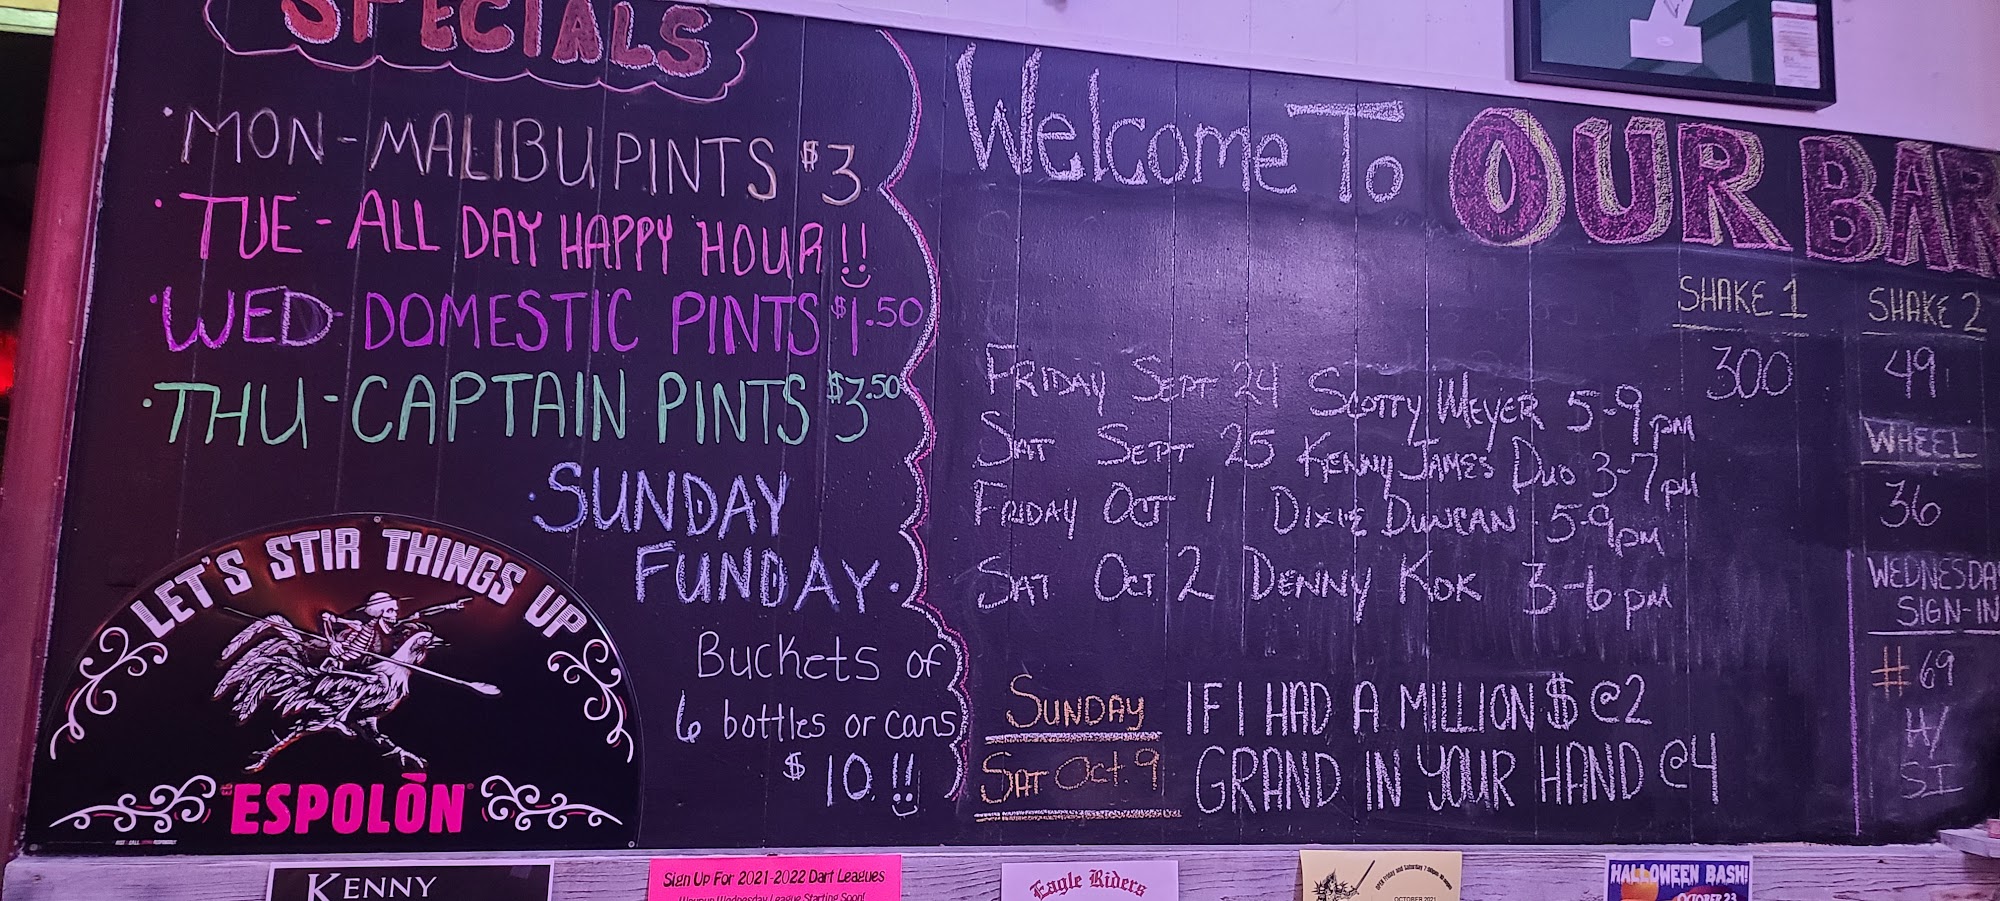 SPECIALS
· MON - MALIBU PINTS $3
· TUE - ALL DAY HAPPY HOUR!!
· WED - DOMESTIC PINTS $1.50
· THU - CAPTAIN PINTS $3.50
· SUNDAY
FUNDAY ·
Buckets of
6 bottles or cans
$10!!
LET'S STIR THINGS UP
ESPOLÒN
Welcome To OUR BAR
SHAKE 1
300
SHAKE 2
49
WHEEL
36
WEDNESDAY
SIGN-IN
#69
H/
SI
FRIDAY SEPT 24 SCOTTY MEYER 5-9pm
SAT SEPT 25 KENNY JAMES DUO 3-7pm
FRIDAY OCT 1 DIXIE DUNCAN 5-9pm
SAT OCT 2 DENNY KOK 3-6pm
SUNDAY IF I HAD A MILLION $ @2
SAT OCT. 9 GRAND IN YOUR HAND @4
KENNY
Sign Up For 2021-2022 Dart Leagues
Wednesday League Starting Soon!
Eagle Riders
OPEN Friday and Saturday 7
OCTOBER 2021
HALLOWEEN BASH!
OCTOBER 23